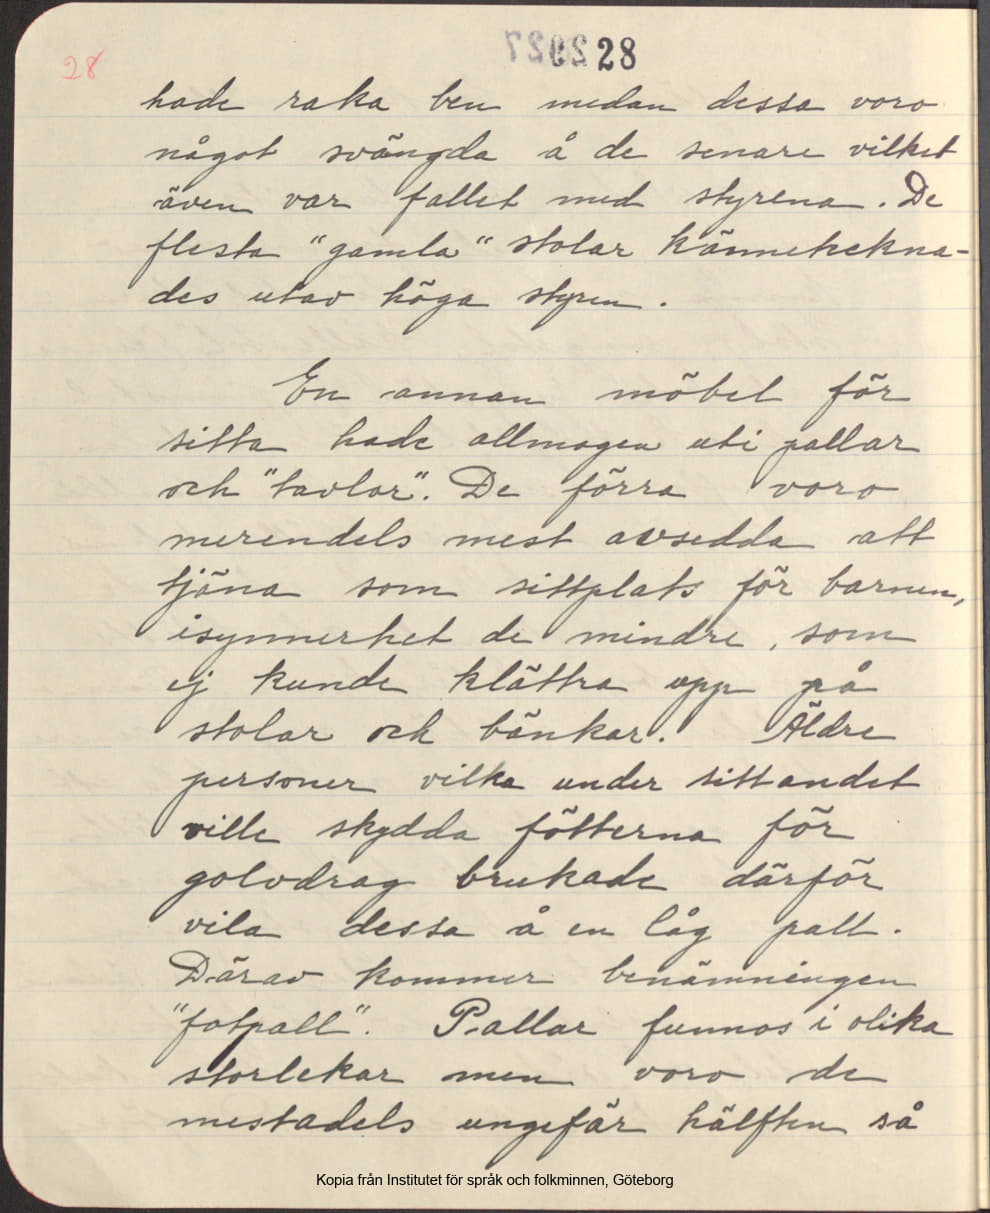 28
2927 28
hade raka ben medan dessa voro
något svängda å de senare vilket
även var fallet med styrena. De
flesta "gamla" stolar känneteckna-
des utav höga styren.
En annan möbel för
sitta hade allmogen uti pallar
och "tavlor". De förra voro
merendels mest avsedda att
tjäna som sittplats för barnen,
isynnerhet de mindre, som
ej kunde klättra upp på
stolar och bänkar. Äldre
personer vilka under sittandet
ville skydda fötterna för
golvdrag brukade därför
vila dessa å en låg pall.
Därav kommer benämningen
"fotpall". Pallar funnos i olika
storlekar men voro de
mestadels ungefär hälften så
Kopia från Institutet för språk och folkminnen, Göteborg